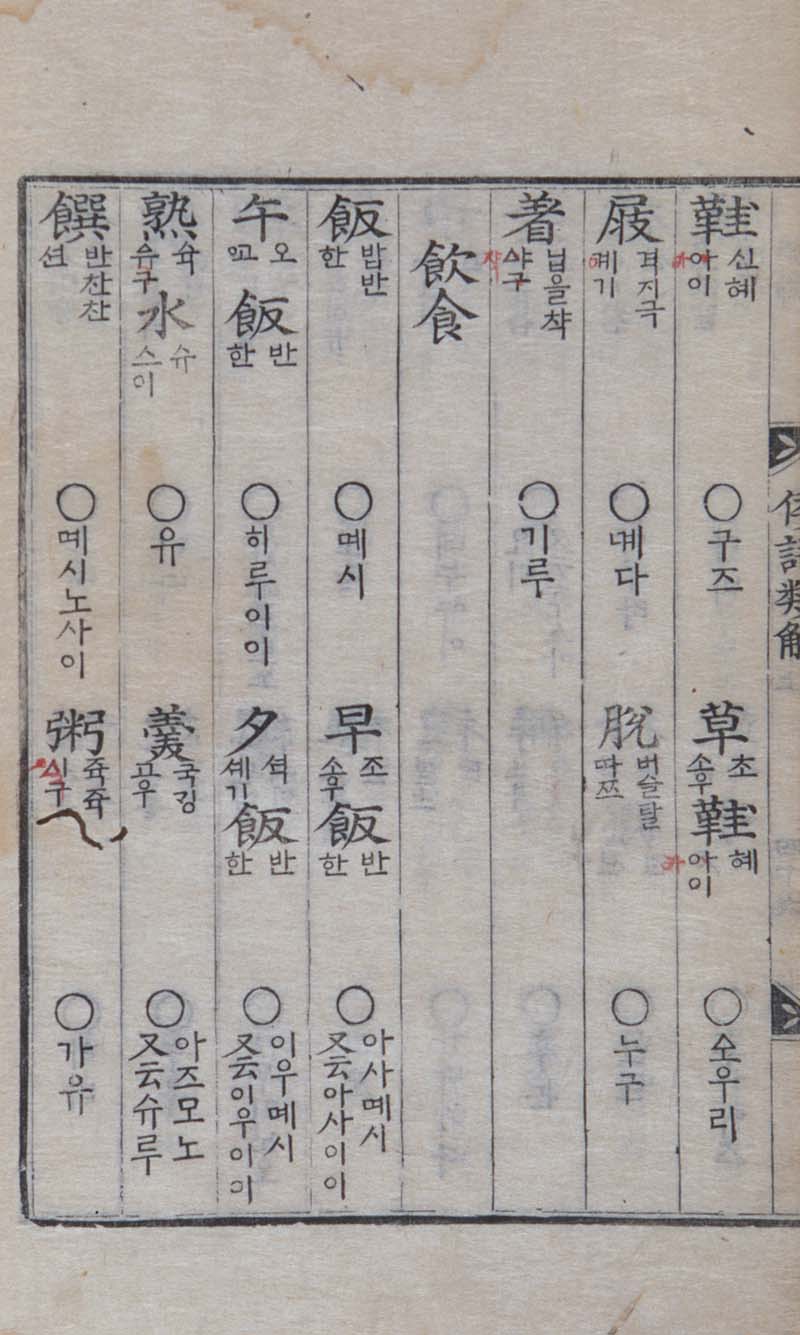 倭語類解
鞋 신혜 아이 ○구즈 草 초 소우 鞋 혜 아이 ○소우리
屐 격지극 계기 ○계다 脫 버슬탈 따쯔 ○누구
著 닙을챡 샤구 ○기루
飮食
飯 밥반 한 ○몌시 早 조 소우 飯 반 한 ○아사몌시 又云아사이이
午 오 飯 반 한 ○히루이이 夕 셕 셰기 飯 반 한 ○이우몌시 又云이우이이
熟 슉 슈구 水 슈 스이 ○유 羹 국깅 고우 ○아즈모노 又云슈루
饌 반찬찬 션 ○몌시노사이 粥 쥭쥭 시구 ○가유